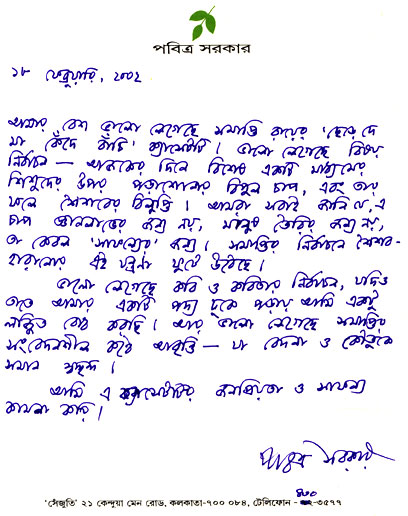 পবিত্র সরকার
১৮ ফেব্রুয়ারি, ২০০২
আমার বেশ ভালো লেগেছে সমাপ্তি রায়ের 'ছেড়ে দে
মা কেঁদে বাঁচি' ক্যাসেটটি। ভালো লেগেছে বিষয়
নির্বাচন — আজকের দিনে বিশেষ একটি মাধ্যমের
শিশুদের উপর পড়াশোনার বিপুল চাপ, এবং তার
ফলে শৈশবের বিলুপ্তি। আমরা সবাই জানি যে, এ
চাপ জ্ঞানলাভের জন্য নয়, মানুষ তৈরির জন্য নয়,
তা কেবল 'সাফল্যের' জন্য। সমাপ্তির নির্বাচনে শৈশব-
হারানোর এই যন্ত্রণা ফুটে উঠেছে।
ভালো লেগেছে কবি ও কবিতার নির্বাচন, যদিও
তাতে আমার একটি পদ্য ঢুকে পড়ায় আমি একটু
লজ্জিত বোধ করছি। আর ভালো লেগেছে সমাপ্তির
সংবেদনশীল কণ্ঠে আবৃত্তি — যা বেদনা ও কৌতুকে
সমান স্বচ্ছন্দ।
আমি এ ক্যাসেটটির জনপ্রিয়তা ও সাফল্য
কামনা করি।
পবিত্র সরকার
'সেঁজুতি' ২১ কেন্দুয়া মেন রোড, কলকাতা-৭০০ ০৮৪, টেলিফোন - ৪৩০-৩৫৭৭